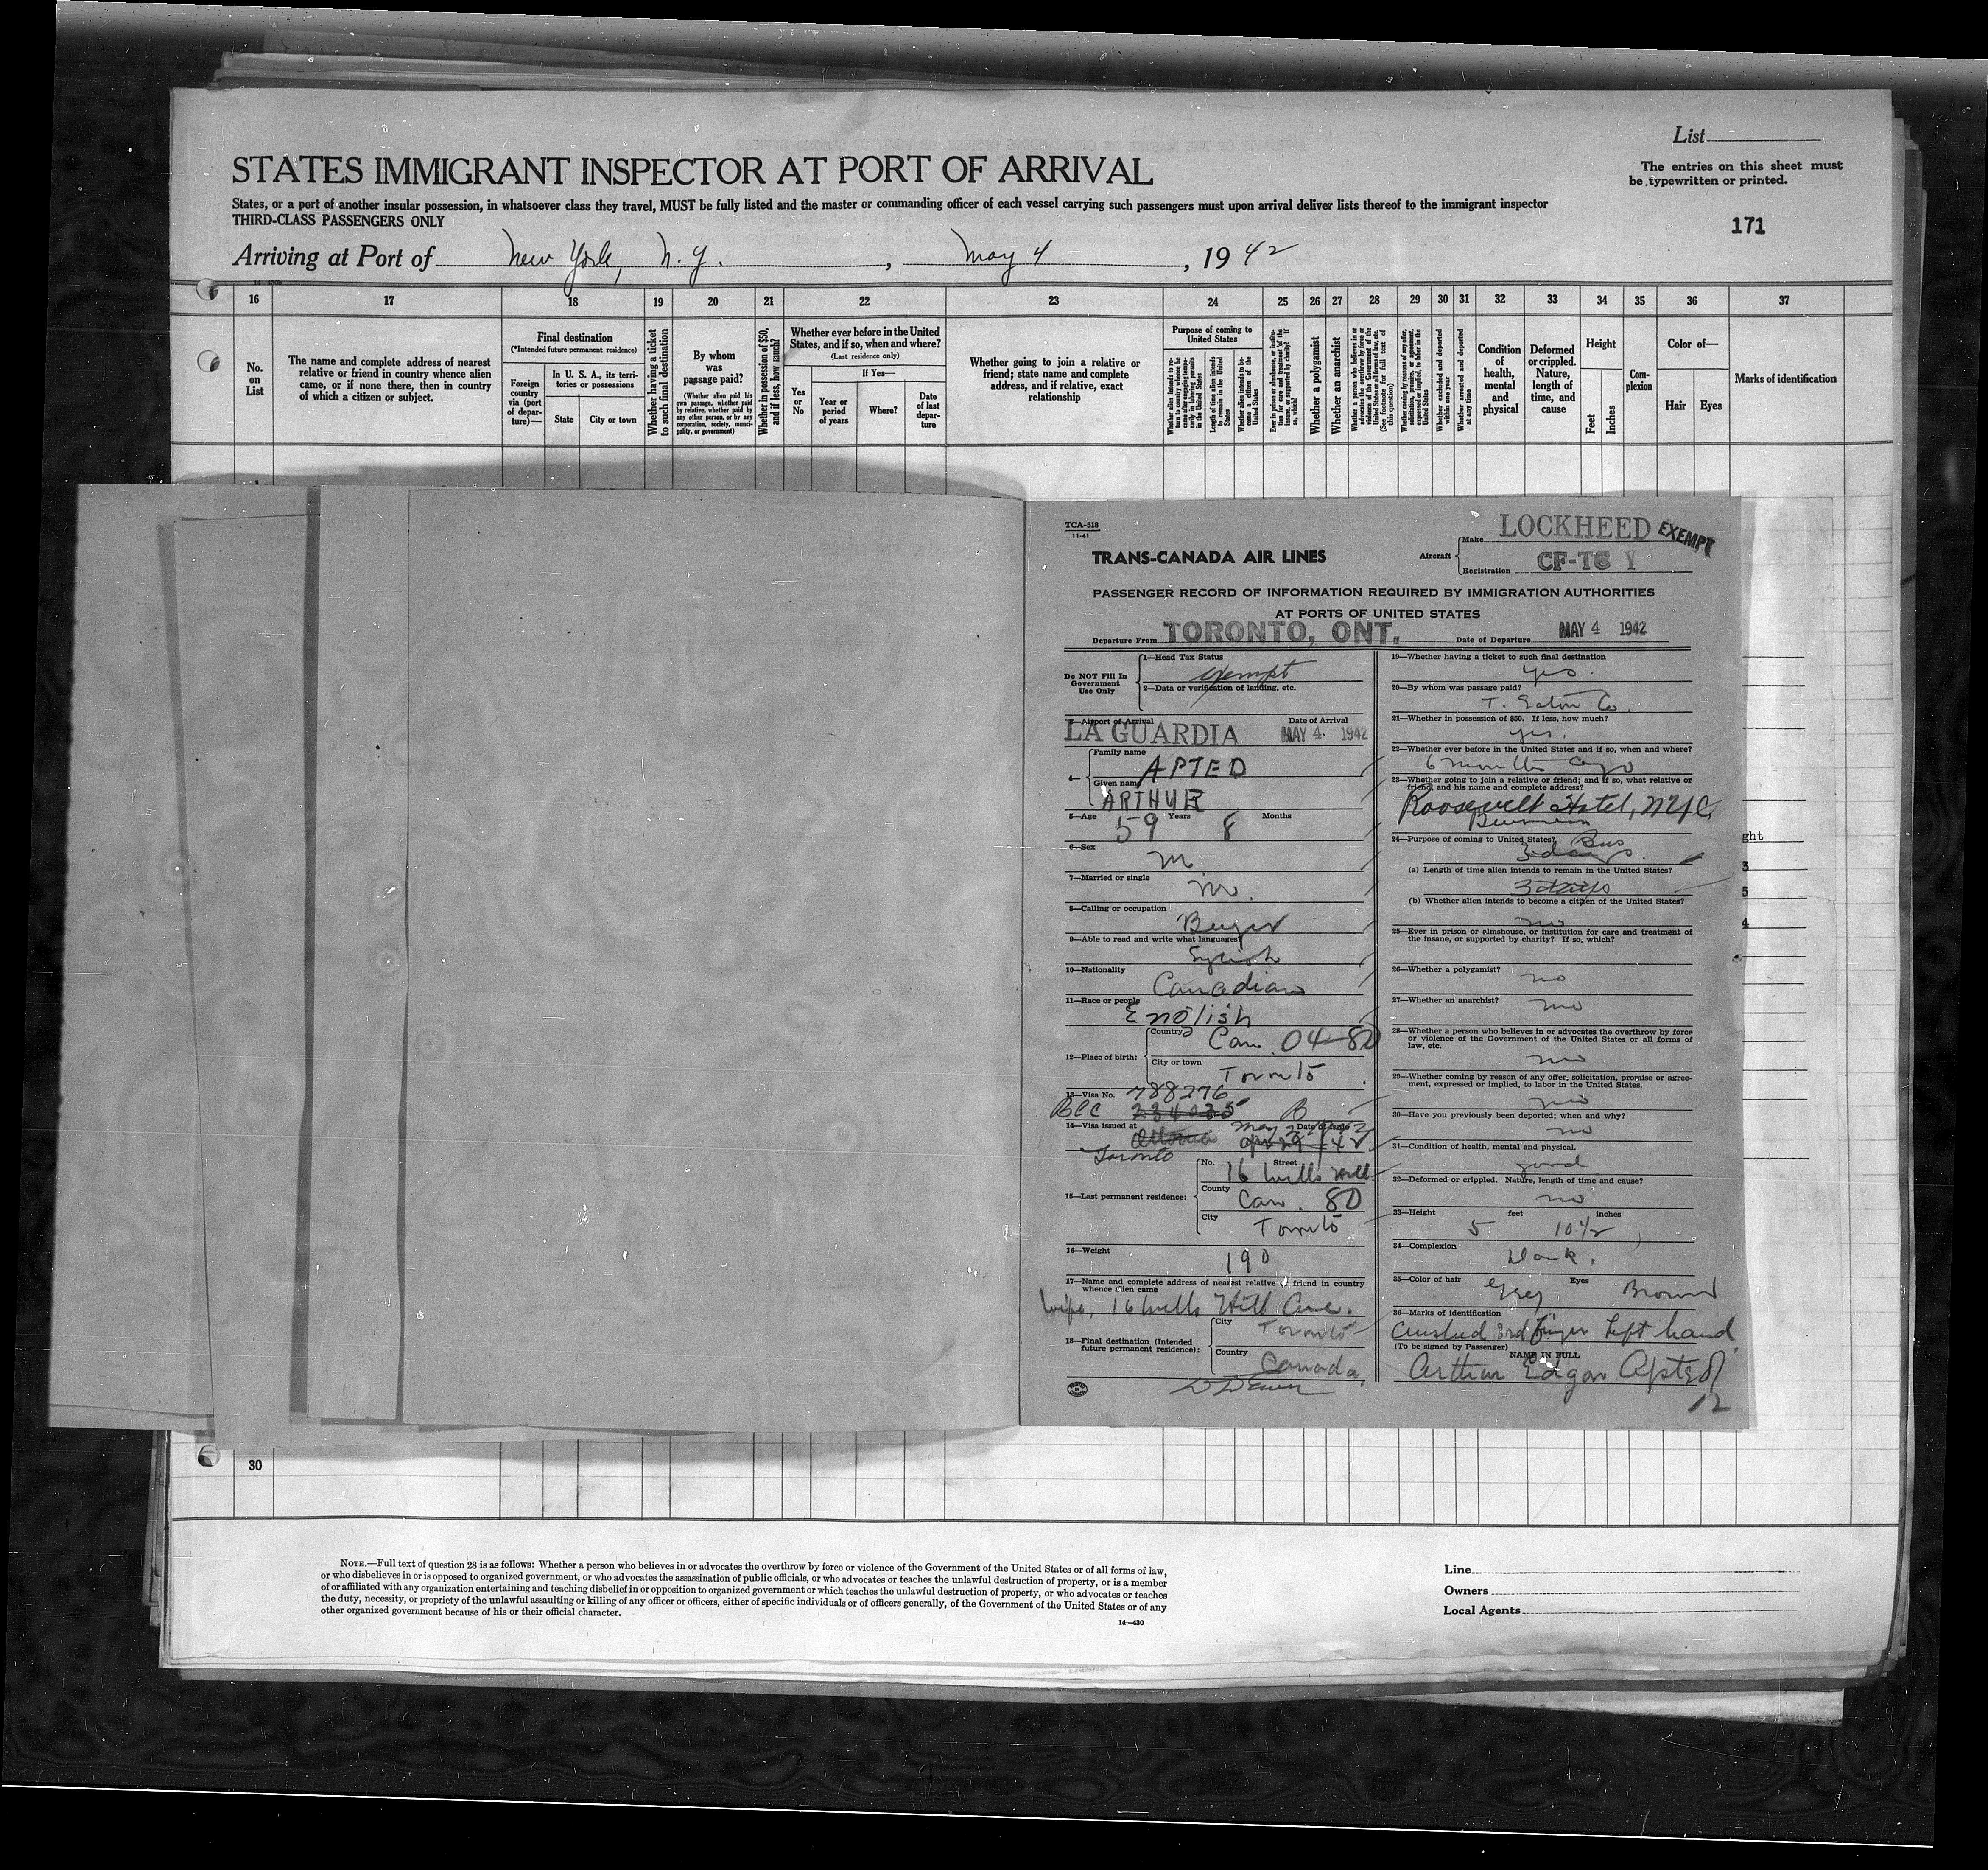 List
STATES IMMIGRANT INSPECTOR AT PORT OF ARRIVAL
The entries on this sheet must
be typewritten or printed.
States, or a port of another insular possession, in whatsoever class they travel, MUST be fully listed and the master or commanding officer of each vessel carrying such passengers must upon arrival deliver lists thereof to the immigrant inspector
THIRD-CLASS PASSENGERS ONLY
171
Arriving at Port of New York, N.Y. , May 4 , 1942
16 17 18 19 20 21 22 23 24 25 26 27 28 29 30 31 32 33 34 35 36 37
No.
on
List
The name and complete address of nearest
relative or friend in country whence alien
came, or if none there, then in country
of which a citizen or subject.
Final destination
(*Intended future permanent residence)
Foreign
country
via (port
of depar-
ture)—
In U. S. A., its terri-
tories or possessions
State
City or town
Whether having a ticket
to such final destination
By whom
was
passage paid?
(Whether alien paid his
own passage, whether paid
by relative, whether paid by
any other person, or by any
corporation, society, munici-
pality, or government)
Whether in possession of $50,
and if less, how much?
Whether ever before in the United
States, and if so, when and where?
(Last residence only)
Yes
or
No
If Yes—
Year or
period
of years
Where?
Date
of last
depar-
ture
Whether going to join a relative or
friend; state name and complete
address, and if relative, exact
relationship
Purpose of coming to
United States
Length of time alien intends
to remain in the United
States
Whether a polygamist
Whether an anarchist
Whether arrested and deported
at any time
Condition
of
health,
mental
and
physical
Deformed
or crippled.
Nature,
length of
time, and
cause
Height
Feet
Inches
Com-
plexion
Color of—
Hair
Eyes
Marks of identification
TCA-518
11-41
TRANS-CANADA AIR LINES
Aircraft
Make LOCKHEED EXEMPT
Registration CF-TC Y
PASSENGER RECORD OF INFORMATION REQUIRED BY IMMIGRATION AUTHORITIES
AT PORTS OF UNITED STATES
Departure From TORONTO, ONT. Date of Departure MAY 4 1942
Do NOT Fill In
Government
Use Only
1—Head Tax Status
exempt
2—Data or verification of landing, etc.
3—Airport of Arrival Date of Arrival
LA GUARDIA MAY 4. 1942
4—
Family name
APTED
Given name
ARTHUR
5—Age 59 Years 8 Months
6—Sex
M
7—Married or single
M.
8—Calling or occupation
Buyer
9—Able to read and write what languages
English
10—Nationality
Canadian
11—Race or people
English
12—Place of birth:
Country
Can. 04-80
City or town
Toronto
13—Visa No. 788276
BCC 234035 B
14—Visa issued at Date of Issue
Ottawa
Toronto
15—Last permanent residence:
No. Street
16 Wells Hill
County
Can. 80
City
Toronto
16—Weight
190
17—Name and complete address of nearest relative or friend in country
whence alien came
Wife, 16 Wells Hill Ave.
18—Final destination (Intended
future permanent residence):
City
Toronto
Country
Canada
19—Whether having a ticket to such final destination
yes.
20—By whom was passage paid?
T. Eaton Co.
21—Whether in possession of $50. If less, how much?
yes.
22—Whether ever before in the United States and if so, when and where?
6 months ago
23—Whether going to join a relative or friend; and if so, what relative or
friend, and his name and complete address?
Roosevelt Hotel, NYC
Business
24—Purpose of coming to United States? Bus
3 days.
(a) Length of time alien intends to remain in the United States?
3 days
(b) Whether alien intends to become a citizen of the United States?
no
25—Ever in prison or almshouse, or institution for care and treatment of
the insane, or supported by charity? If so, which?
26—Whether a polygamist? no
27—Whether an anarchist? no
28—Whether a person who believes in or advocates the overthrow by force
or violence of the Government of the United States or all forms of
law, etc.
no
29—Whether coming by reason of any offer, solicitation, promise or agree-
ment, expressed or implied, to labor in the United States.
no
30—Have you previously been deported; when and why?
no
31—Condition of health, mental and physical.
good
32—Deformed or crippled. Nature, length of time and cause?
no
33—Height 5 feet 10½ inches
34—Complexion
Dark.
35—Color of hair Grey Eyes Brown
36—Marks of identification
Crushed 3rd finger left hand
(To be signed by Passenger)
NAME IN FULL
Arthur Edgar Apted
12
ght
3
5
4
30
NOTE.—Full text of question 28 is as follows: Whether a person who believes in or advocates the overthrow by force or violence of the Government of the United States or of all forms of law,
or who disbelieves in or is opposed to organized government, or who advocates the assassination of public officials, or who advocates or teaches the unlawful destruction of property, or is a member
of or affiliated with any organization entertaining and teaching disbelief in or opposition to organized government or which teaches the unlawful destruction of property, or who advocates or teaches
the duty, necessity, or propriety of the unlawful assaulting or killing of any officer or officers, either of specific individuals or of officers generally, of the Government of the United States or of any
other organized government because of his or their official character.
14—430
Line
Owners
Local Agents